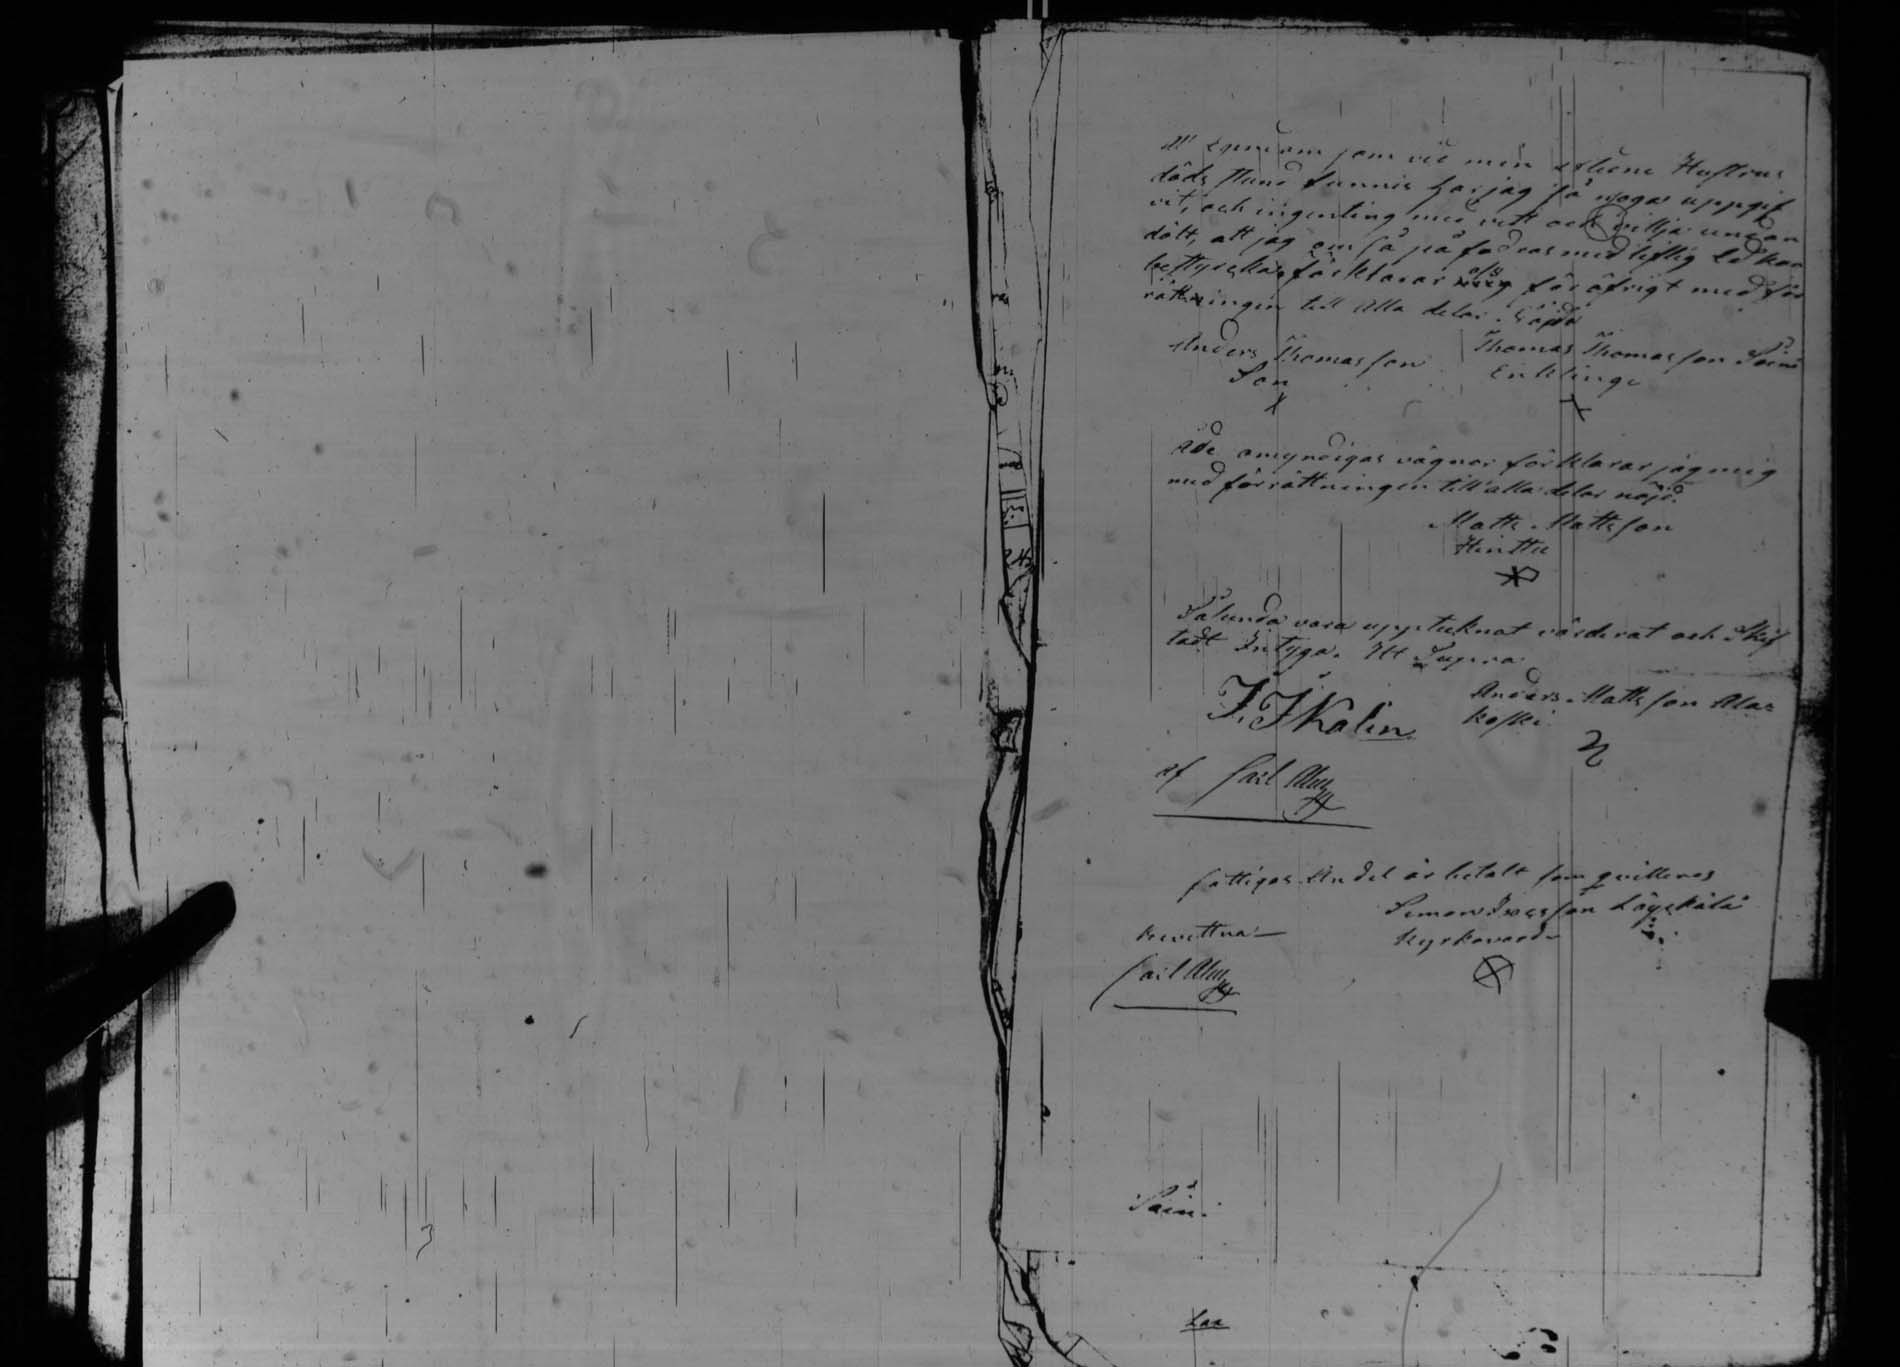 Al Egendom som vid min aflidne Hustrus
döds stund funnits har jag så noga uppgif
vit, och ingenting med vett och villja undan
dölt, att jag om så på fodras med liflig Ed kan
bestyrcka, förklarar ofs för öfrigt med för
rättningen till alla delar Nöjda
Anders Thomasson
Son
Thomas Thomasson Säini
Enklinge
På de omyndigas vägnar förklarar jag mig
med förrättningen till alla delar nöjd.
Matts Mattsson
Hinttu
Sålunda vara upptecknat värderat och Skif
tadt Intyga. Ut Supra
Anders Mattsson Ala=
koski
af Carl Alm
fattigas Andel är betalt som qvitteras
Simon Löyskälä
Kyrkovärd
kvitterna
Carl Alm
Säini